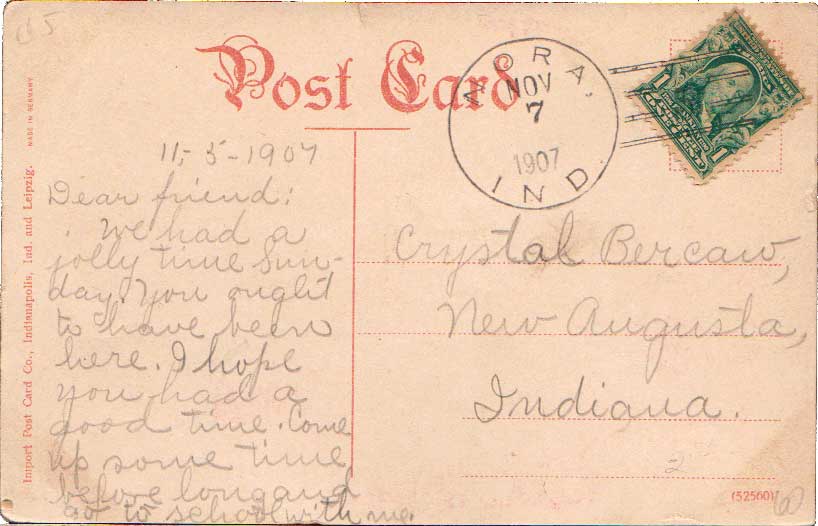 65
Post Card
NORA,
NOV
7
1907
IND.
1
1
Import Post Card Co., Indianapolis, Ind. and Leipzig.
MADE IN GERMANY
11-5-1907
Dear friend:
We had a
jolly time Sun-
day. You ought
to have been
here. I hope
you had a
good time. Come
up some time
before long and
go to school with me.
Crystal Bercaw,
New Augusta,
Indiana.
2
(52560)
60